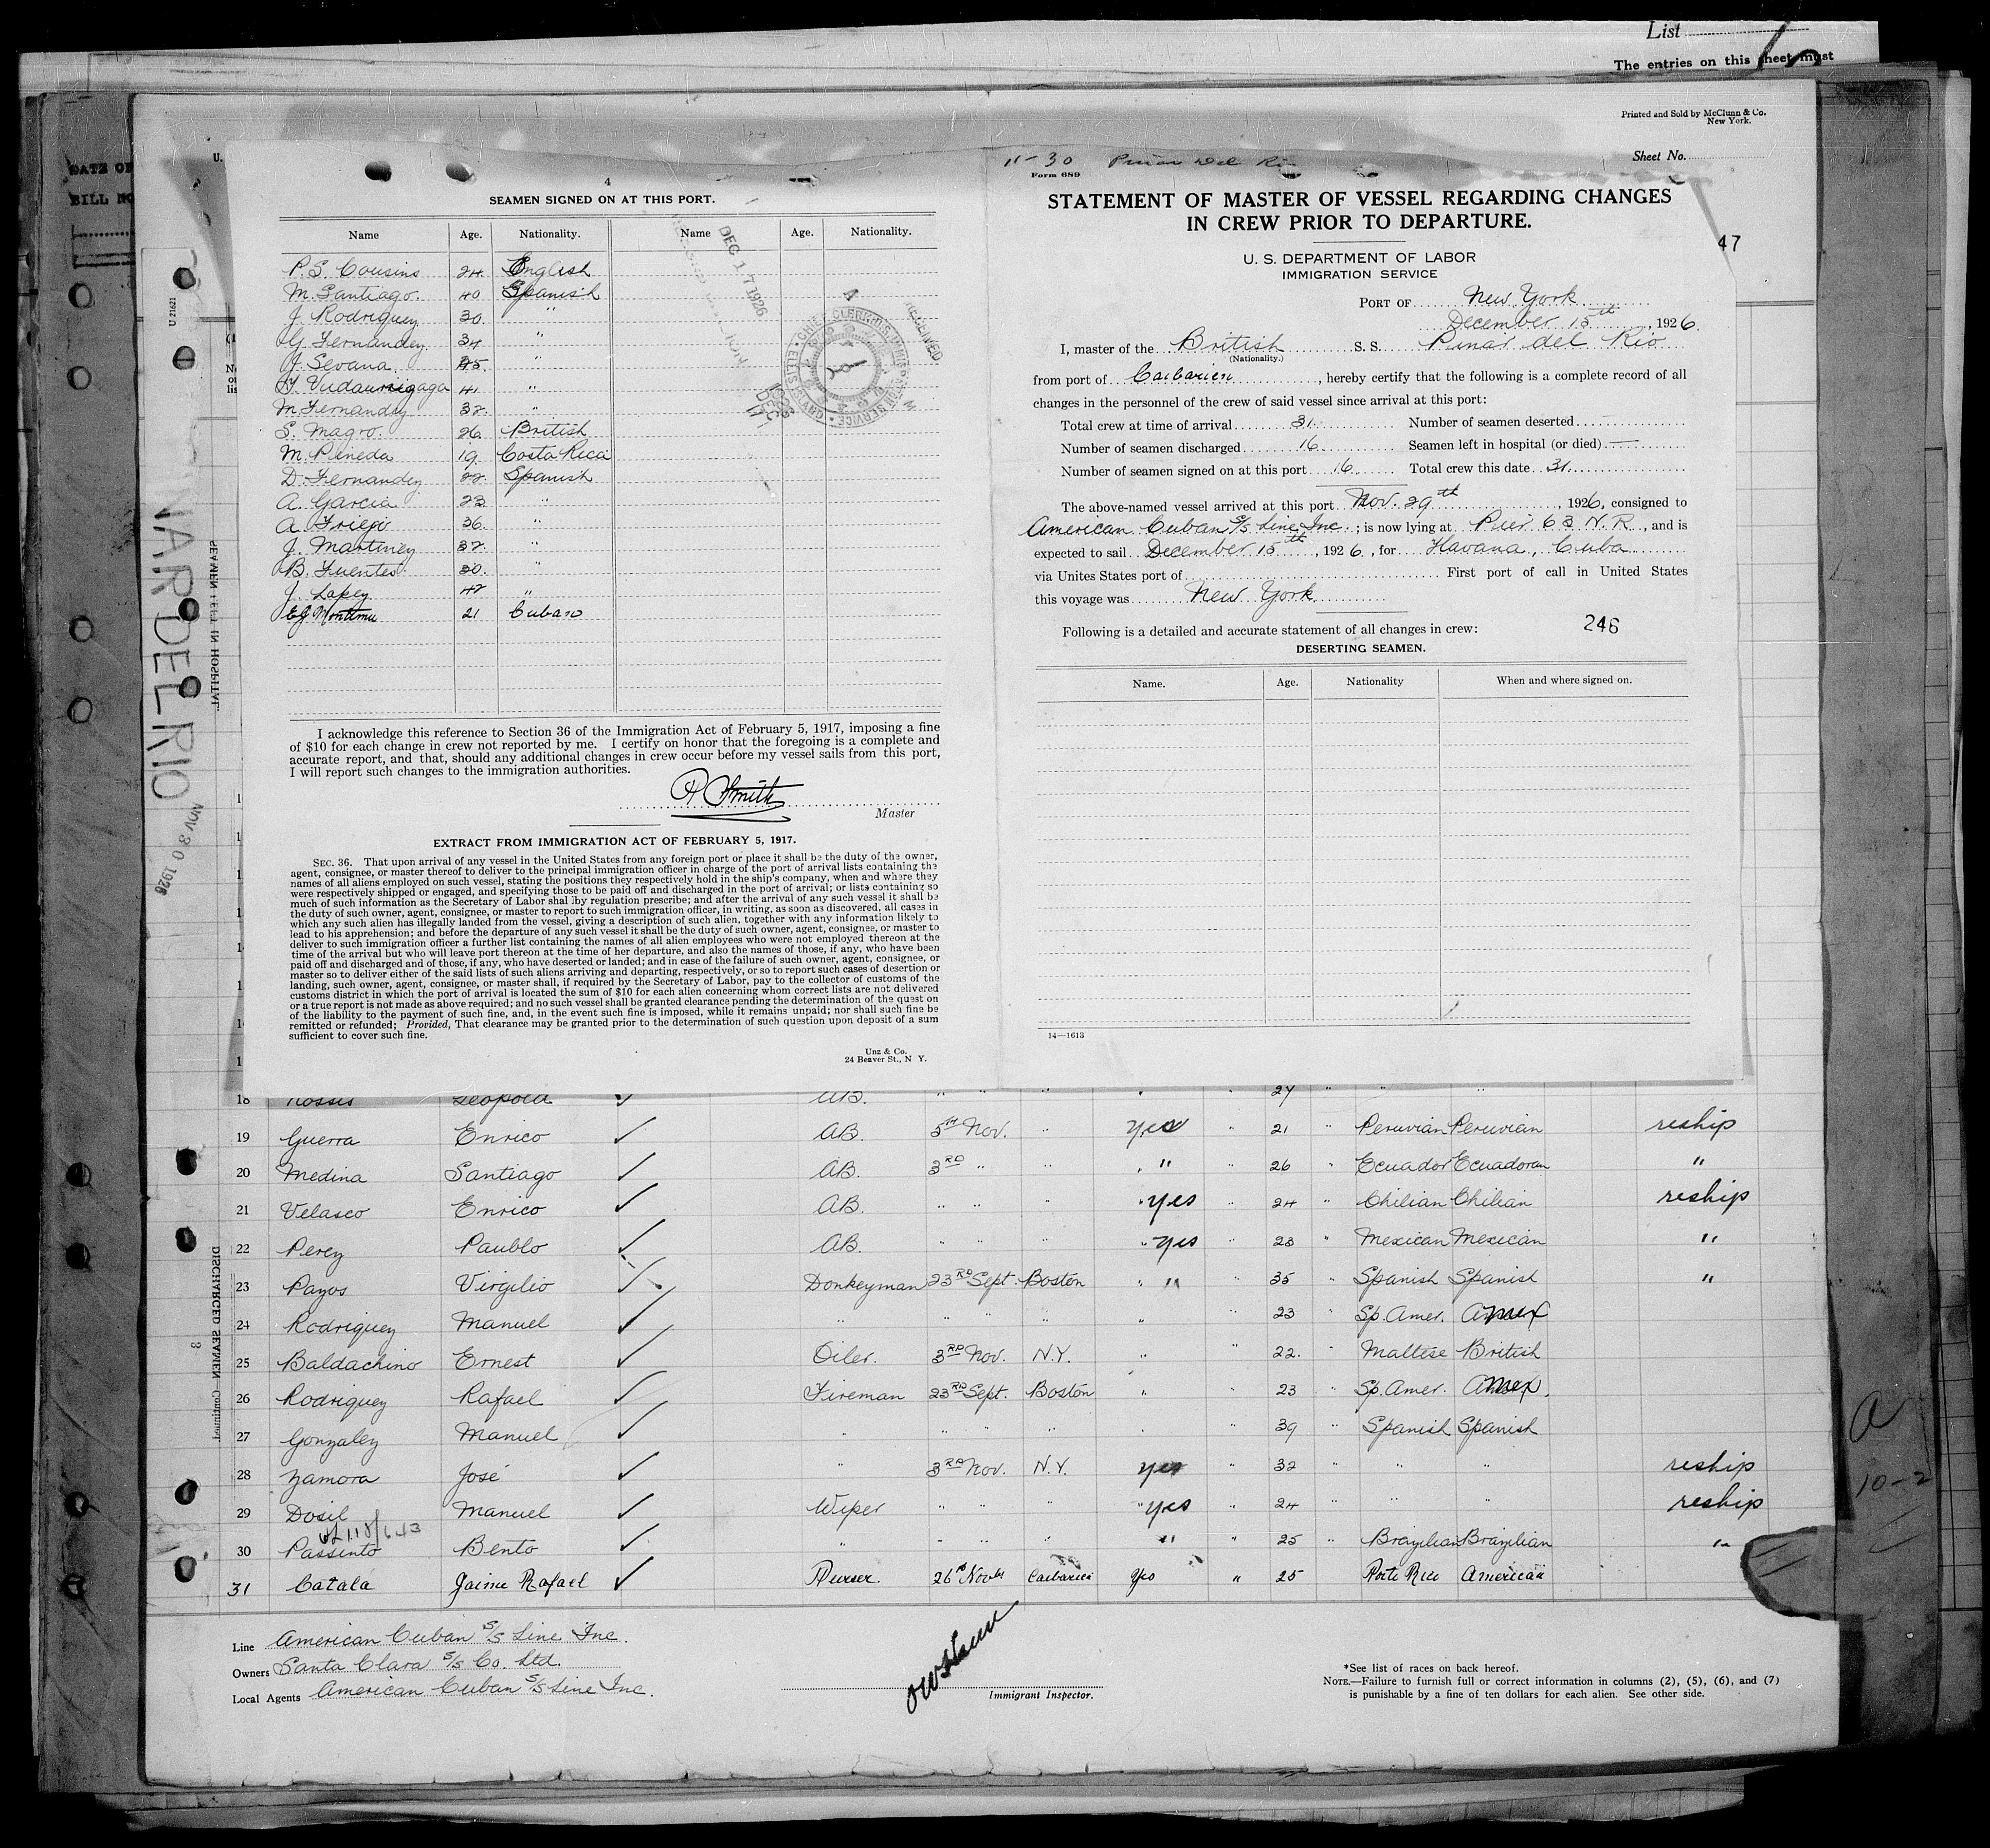 List
The entries on this sheet must
Printed and Sold by McClunn & Co.
New York.
Sheet No.
DATE OF
BILL NO
U.
U 21621
PINAR DEL RIO
NOV 30 1926
SEAMEN LEFT IN HOSPITAL
DISCHARGED SEAMEN—Continued.
3
4
SEAMEN SIGNED ON AT THIS PORT.
Name Age. Nationality. Name Age. Nationality.
P. S. Cousins 24 English
M. Santiago. 40 Spanish
J. Rodriguez 30. "
G. Fernandez 34 "
J. Sevana. 45 "
41 "
M. Fernandez 32. "
S. Magro. 26 British
M. Pineda 19. Costa Rica
D. Fernandez 22 Spanish
A. Garcia 23 "
A. 36. "
J. Martinez 32 "
B. Fuentes 30. "
J. Lopez 42 "
21 Cuban
DEC 17 1926
RECEIVED
CHIEF CLERK U.S. IMMIGRATION SERVICE • ELLIS ISLAND
I acknowledge this reference to Section 36 of the Immigration Act of February 5, 1917, imposing a fine
of $10 for each change in crew not reported by me. I certify on honor that the foregoing is a complete and
accurate report, and that, should any additional changes in crew occur before my vessel sails from this port,
I will report such changes to the immigration authorities.
R Smith
Master
EXTRACT FROM IMMIGRATION ACT OF FEBRUARY 5, 1917.
SEC. 36. That upon arrival of any vessel in the United States from any foreign port or place it shall be the duty of the owner,
agent, consignee, or master thereof to deliver to the principal immigration officer in charge of the port of arrival lists containing the
names of all aliens employed on such vessel, stating the positions they respectively hold in the ship's company, when and where they
were respectively shipped or engaged, and specifying those to be paid off and discharged in the port of arrival; or lists containing so
much of such information as the Secretary of Labor shal lby regulation prescribe; and after the arrival of any such vessel it shall be
the duty of such owner, agent, consignee, or master to report to such immigration officer, in writing, as soon as discovered, all cases in
which any such alien has illegally landed from the vessel, giving a description of such alien, together with any information likely to
lead to his apprehension; and before the departure of any such vessel it shall be the duty of such owner, agent, consignee, or master to
deliver to such immigration officer a further list containing the names of all alien employees who were not employed thereon at the
time of the arrival but who will leave port thereon at the time of her departure, and also the names of those, if any, who have been
paid off and discharged and of those, if any, who have deserted or landed; and in case of the failure of such owner, agent, consignee, or
master so to deliver either of the said lists of such aliens arriving and departing, respectively, or so to report such cases of desertion or
landing, such owner, agent, consignee, or master shall, if required by the Secretary of Labor, pay to the collector of customs of the
customs district in which the port of arrival is located the sum of $10 for each alien concerning whom correct lists are not delivered
or a true report is not made as above required; and no such vessel shall be granted clearance pending the determination of the quest on
of the liability to the payment of such fine, and, in the event such fine is imposed, while it remains unpaid; nor shall such fine be
remitted or refunded; Provided, That clearance may be granted prior to the determination of such question upon deposit of a sum
sufficient to cover such fine.
Unz & Co.
24 Beaver St., N Y.
11-30 Pinar del Rio
Form 689
STATEMENT OF MASTER OF VESSEL REGARDING CHANGES
IN CREW PRIOR TO DEPARTURE.
47
U. S. DEPARTMENT OF LABOR
IMMIGRATION SERVICE
PORT OF New York
December 15th, 1926.
I, master of the British S. S. Pinar del Rio
(Nationality.)
from port of Caibarien, hereby certify that the following is a complete record of all
changes in the personnel of the crew of said vessel since arrival at this port:
Total crew at time of arrival 31. Number of seamen deserted
Number of seamen discharged 16. Seamen left in hospital (or died) —
Number of seamen signed on at this port 16 Total crew this date 31.
The above-named vessel arrived at this port Nov. 29th, 1926, consigned to
American Cuban S/S Line, Inc.; is now lying at Pier 63 N. R., and is
expected to sail December 15th, 1926, for Havana, Cuba
via Unites States port of First port of call in United States
this voyage was New York
Following is a detailed and accurate statement of all changes in crew: 246
DESERTING SEAMEN.
Name. Age. Nationality When and where signed on.
14—1613
18 Rossis Leopold ✓ AB. " " " " " 27 " " "
19 Guerra Enrico ✓ AB. 5TH Nov. " Yes " 21 " Peruvian Peruvian reship
20 Medina Santiago ✓ AB. 3RD " " " " 26 " Ecuador Ecuadoran "
21 Velasco Enrico ✓ AB. " " " Yes " 24 " Chilian Chilian reship
22 Perez Paublo ✓ AB. " " " Yes " 23 " Mexican Mexican "
23 Pazos Virgilio ✓ Donkeyman 23RD Sept. Boston " " 35 " Spanish Spanish "
24 Rodriguez Manuel ✓ " " " " " " 23 " Sp. Amer.
25 Baldachino Ernest ✓ Oiler. 3RD Nov. N.Y. " " 22. " Maltese British
26 Rodriguez Rafael ✓ Fireman 23RD Sept. Boston " " 23 " Sp. Amer.
27 Gonzalez Manuel ✓ " " " " " " 39 " Spanish Spanish
28 Zamora José ✓ " 3RD Nov. N.Y. Yes " 32 " " " reship
29 Dosil Manuel ✓ Wiper " " " Yes " 24 " " " reship
30 Passinto Bento ✓ " " " " " " 25 " Brazilian Brazilian "
31 Catala Jaime Rafael ✓ Purser. 26th Novbr Caibarien Yes " 25 Porto Rico American
A
10-2
Line American Cuban S/S Line Inc.
Owners Santa Clara S/S Co. Ltd.
Local Agents American Cuban S/S Line Inc.
Immigrant Inspector.
*See list of races on back hereof.
NOTE.—Failure to furnish full or correct information in columns (2), (5), (6), and (7)
is punishable by a fine of ten dollars for each alien. See other side.